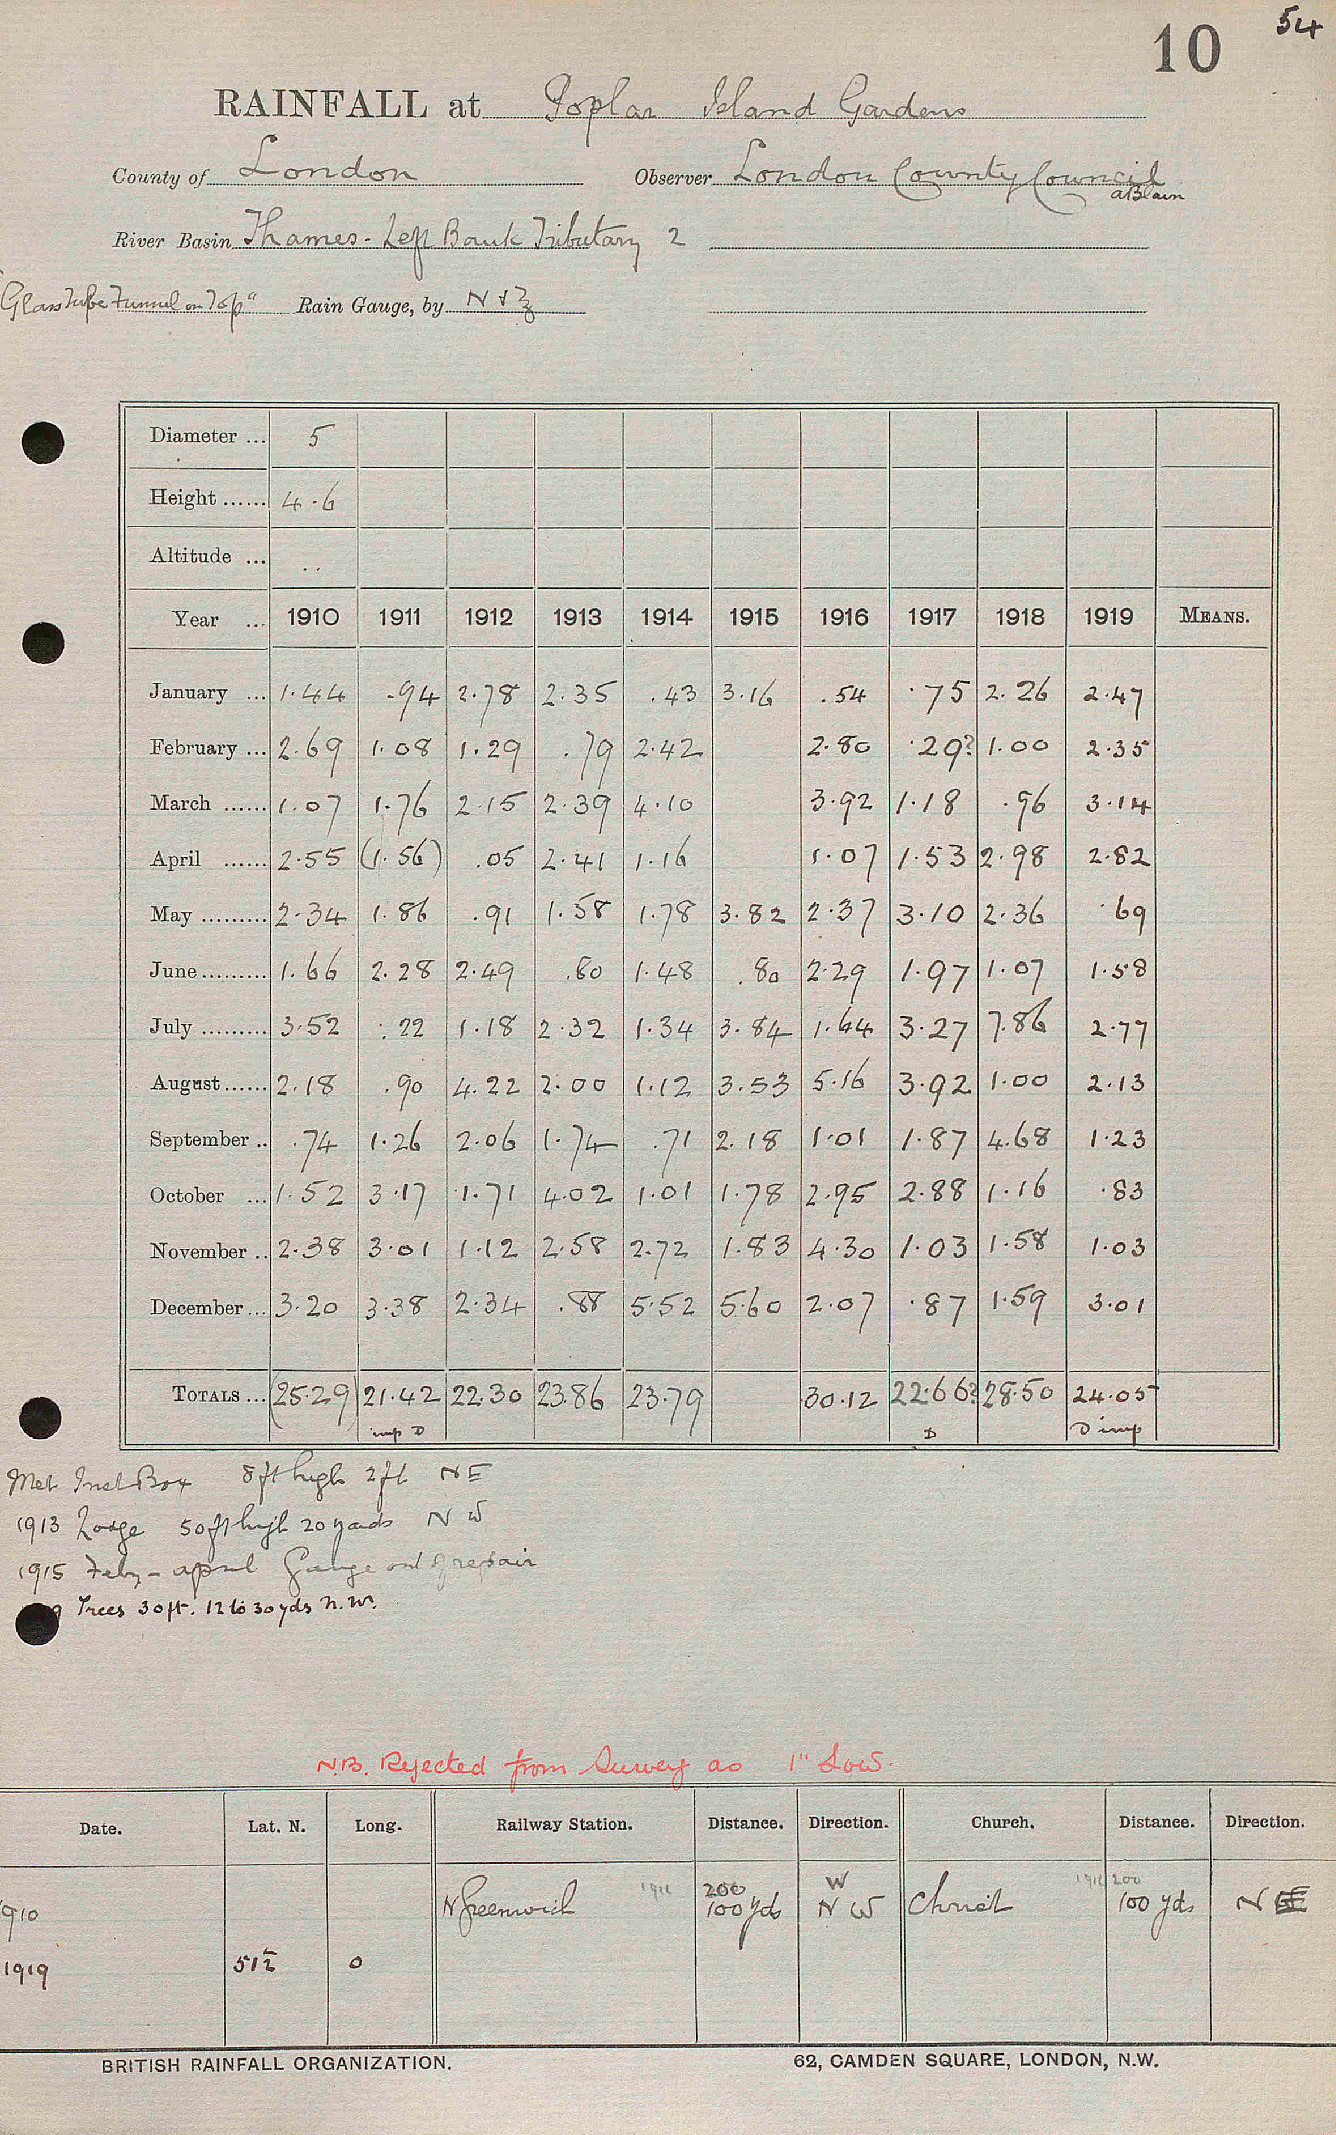 54
10
RAINFALL at Poplar Island Gardens
County of London Observer London County Council
A Blain
River Basin Thames - Left Bank Tributary 2
"Glass Tube Funnel on Top" Rain Gauge, by N & Z
Diameter ... 5
Height ...... 4.6
Altitude ... ..
Year ... 1910 1911 1912 1913 1914 1915 1916 1917 1918 1919 MEANS.
January ... 1.44 .94 2.78 2.35 .43 3.16 .54 .75 2.26 2.47
February ... 2.69 1.08 1.29 .79 2.42 2.80 .29? 1.00 2.35
March ...... 1.07 1.76 2.15 2.39 4.10 3.92 1.18 .96 3.14
April ...... 2.55 (1.56) .05 2.41 1.16 1.07 1.53 2.98 2.82
May ......... 2.34 1.86 .91 1.58 1.78 3.82 2.37 3.10 2.36 .69
June ......... 1.66 2.28 2.49 .80 1.48 .80 2.29 1.97 1.07 1.58
July ......... 3.52 .22 1.18 2.32 1.34 3.84 1.64 3.27 7.86 2.77
August ...... 2.18 .90 4.22 2.00 1.12 3.53 5.16 3.92 1.00 2.13
September .. .74 1.26 2.06 1.74 .71 2.18 1.01 1.87 4.68 1.23
October ... 1.52 3.17 1.71 4.02 1.01 1.78 2.95 2.88 1.16 .83
November .. 2.38 3.01 1.12 2.58 2.72 1.83 4.30 1.03 1.58 1.03
December ... 3.20 3.38 2.34 .88 5.52 5.60 2.07 .87 1.59 3.01
TOTALS ... 25.29 21.42 22.30 23.86 23.79 30.12 22.66? 28.50 24.05
imp D D D imp
Met Inst Box 8ft high 2ft NE
1913 Lodge 50ft high 20 yards NW
1915 Feby - april Gauge out of repair
Trees 30ft. 12 to 30 yds N.W.
N.B. Rejected from Survey as 1" Low.
Date. Lat. N. Long. Railway Station. Distance. Direction. Church. Distance. Direction.
1910 N Greenwich 1916 200 100 yds W N W Christ 1916 200 100 yds N
1919 51½ 0
BRITISH RAINFALL ORGANIZATION. 62, CAMDEN SQUARE, LONDON, N.W.